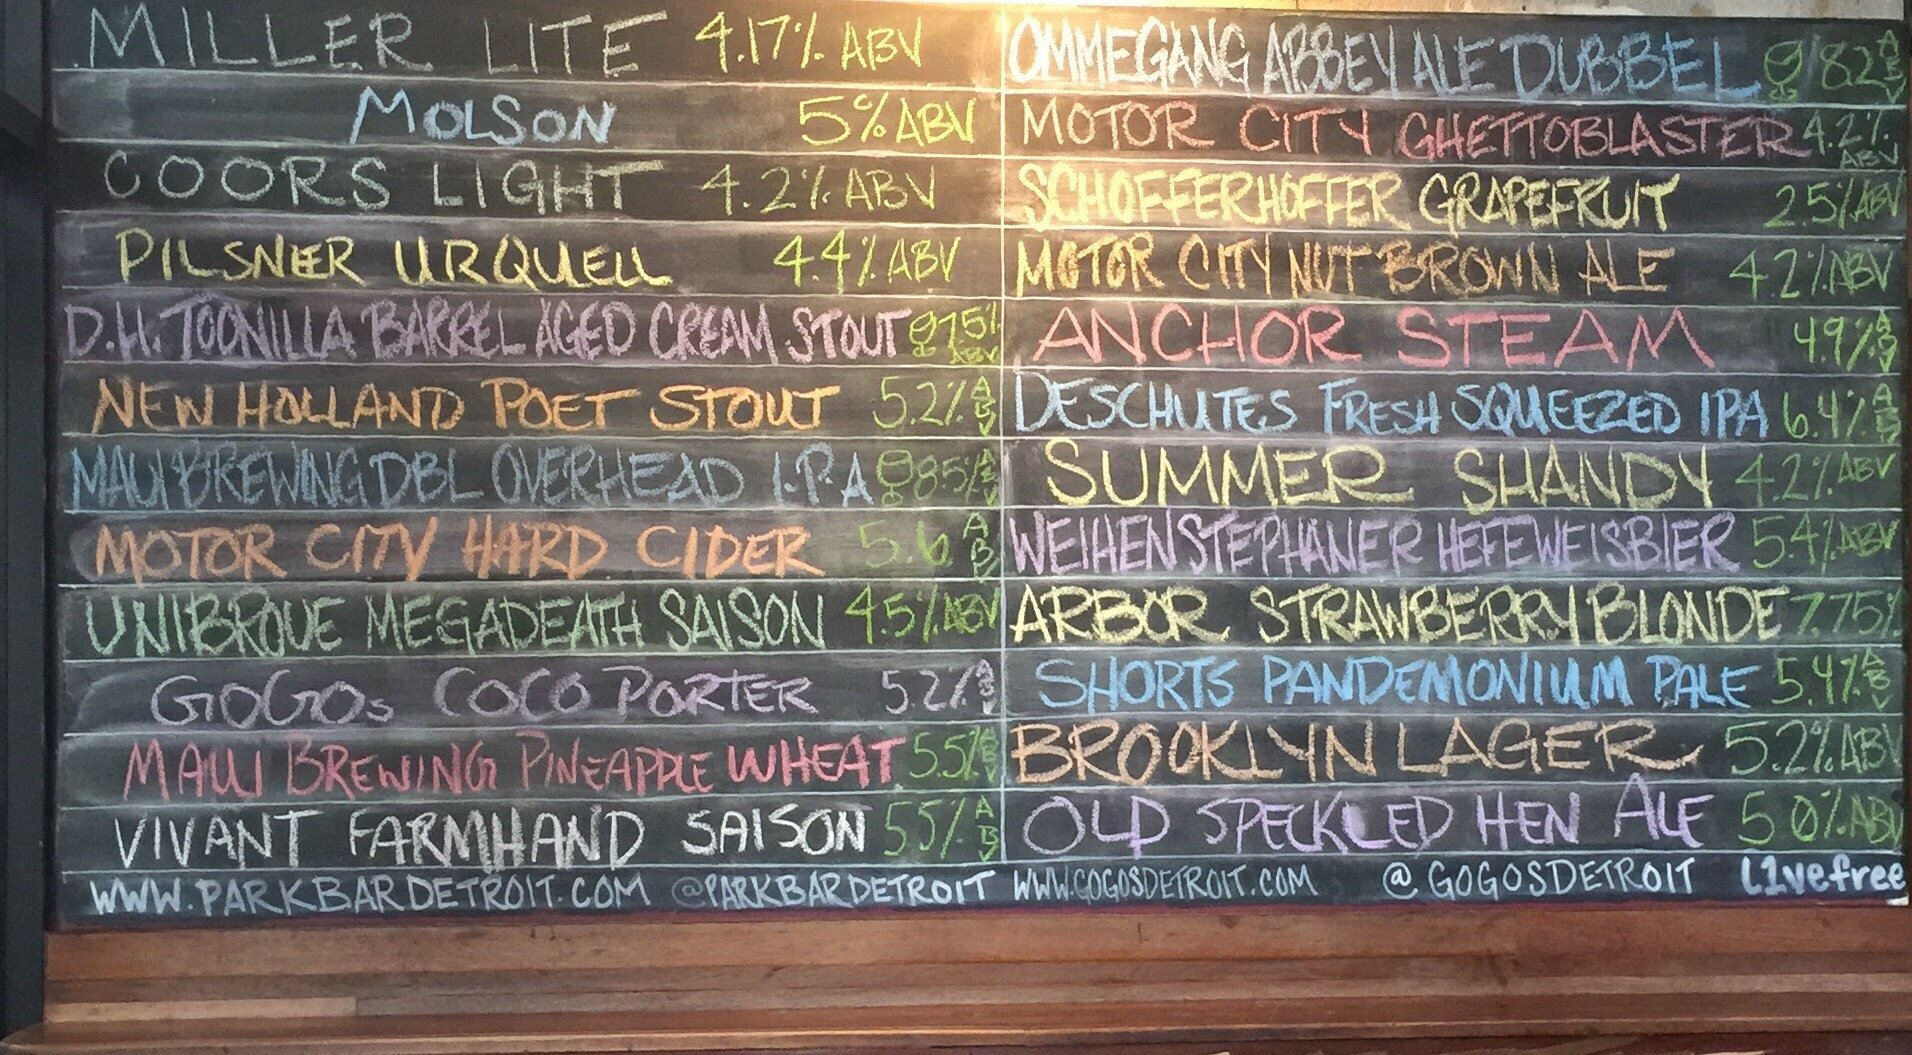 MILLER LITE 4.17% ABV
MOLSON 5% ABV
COORS LIGHT 4.2% ABV
PILSNER URQUELL 4.4% ABV
D.H. TOONILLA BARREL AGED CREAM STOUT 7.5% ABV
NEW HOLLAND POET STOUT 5.2% ABV
MAUI BREWING DBL OVERHEAD I.P.A 8.5% ABV
MOTOR CITY HARD CIDER 5.6 AB
UNIBROUE MEGADEATH SAISON 4.5% ABV
GOGOs COCO PORTER 5.2% ABV
MAUI BREWING PINEAPPLE WHEAT 5.5% ABV
VIVANT FARMHAND SAISON 5.5% ABV
WWW.PARKBARDETROIT.COM @PARKBARDETROIT
OMMEGANG ABBEY ALE DUBBEL 8.2 ABV
MOTOR CITY GHETTOBLASTER 4.2% ABV
SCHOFFERHOFFER GRAPEFRUIT 2.5% ABV
MOTOR CITY NUT BROWN ALE 4.2% ABV
ANCHOR STEAM 4.9% ABV
DESCHUTES FRESH SQUEEZED IPA 6.4% ABV
SUMMER SHANDY 4.2% ABV
WEIHENSTEPHANER HEFEWEISBIER 5.4% ABV
ARBOR STRAWBERRY BLONDE 7.75%
SHORTS PANDEMONIUM PALE 5.4% ABV
BROOKLYN LAGER 5.2% ABV
OLD SPECKLED HEN ALE 5.0% ABV
WWW.GOGOSDETROIT.COM @GOGOSDETROIT L1vefree